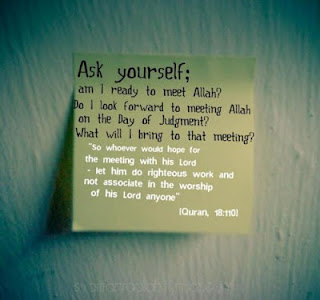 Ask yourself;
am I ready to meet Allah?
Do I look forward to meeting Allah
on the Day of Judgment?
What will I bring to that meeting?
"So whoever would hope for
the meeting with his Lord
- let him do righteous work and
not associate in the worship
of his Lord anyone"
[Quran, 18:110]